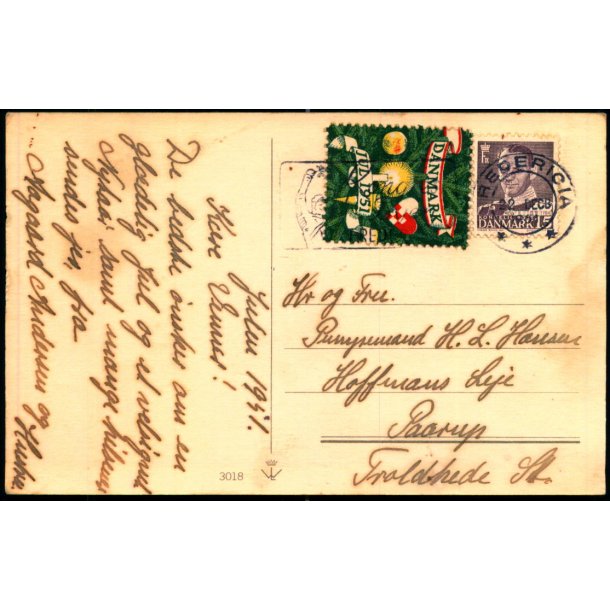 Julen 1951.
Kære Venner!
De bedste ønsker om en
glædelig Jul og et velsignet
Nytaar samt mange hilsener
sendes fra
Aagaard Andersen og Hustru
Hr og Fru.
Pumpemand H. L. Hansen
Hoffmans Leje
Paarup
Troldhede St.
3018
DANMARK
JUL 1951
FREDERICIA
DANMARK 15